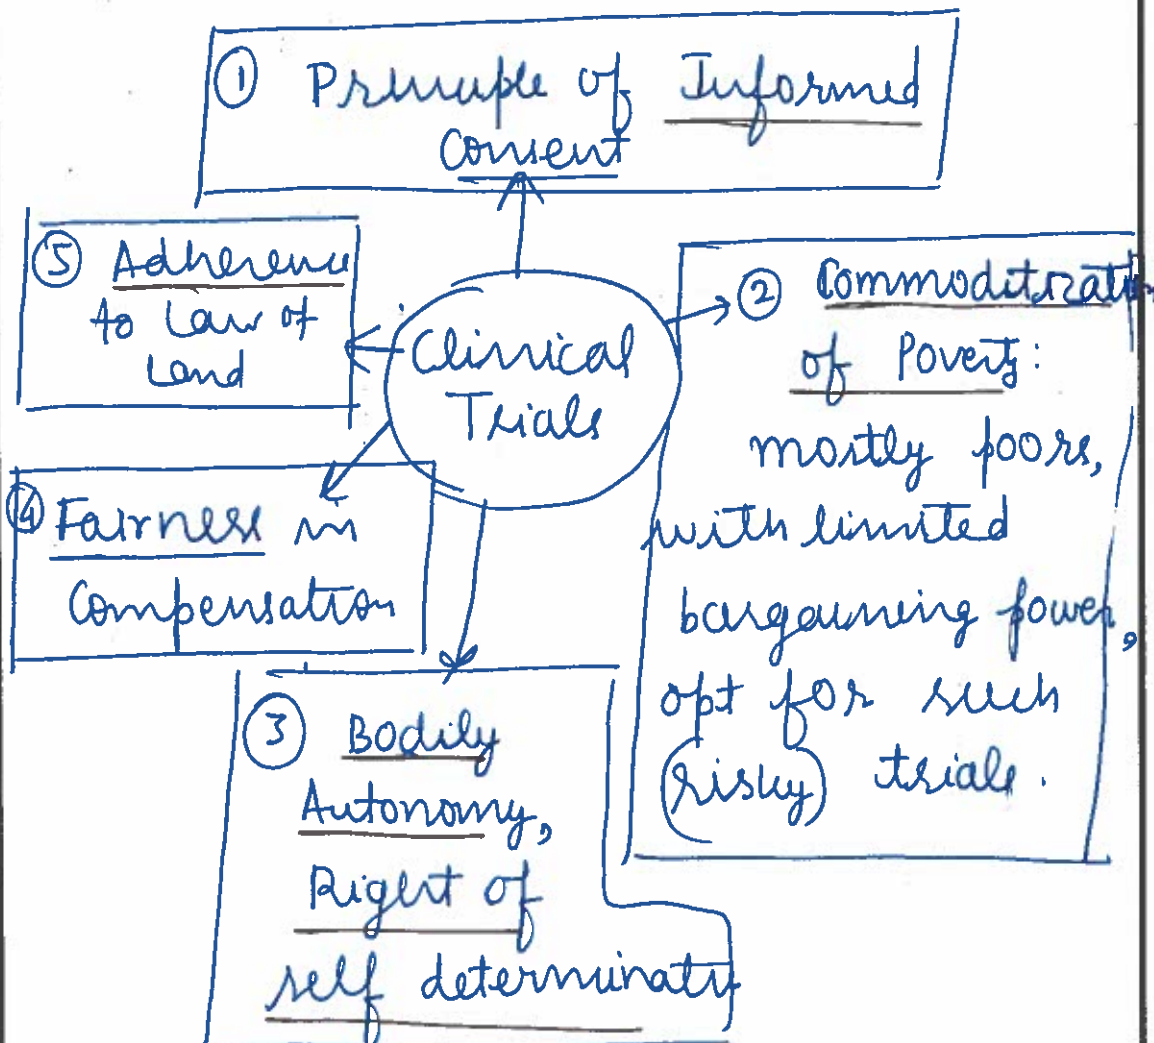 ① Principle of Informed
Consent
⑤ Adherence
to Law of
Land
Clinical
Trials
② Commoditizati
of Poverty:
mostly poors,
with limited
bargaining power,
opt for such
(risky) trials.
④ Fairness in
Compensation
③ Bodily
Autonomy,
Right of
self determinati